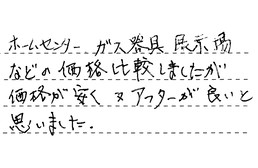 ホームセンター ガス器具展示場
などの価格比較しましたが
価格が安く又アフターが良いと
思いました.